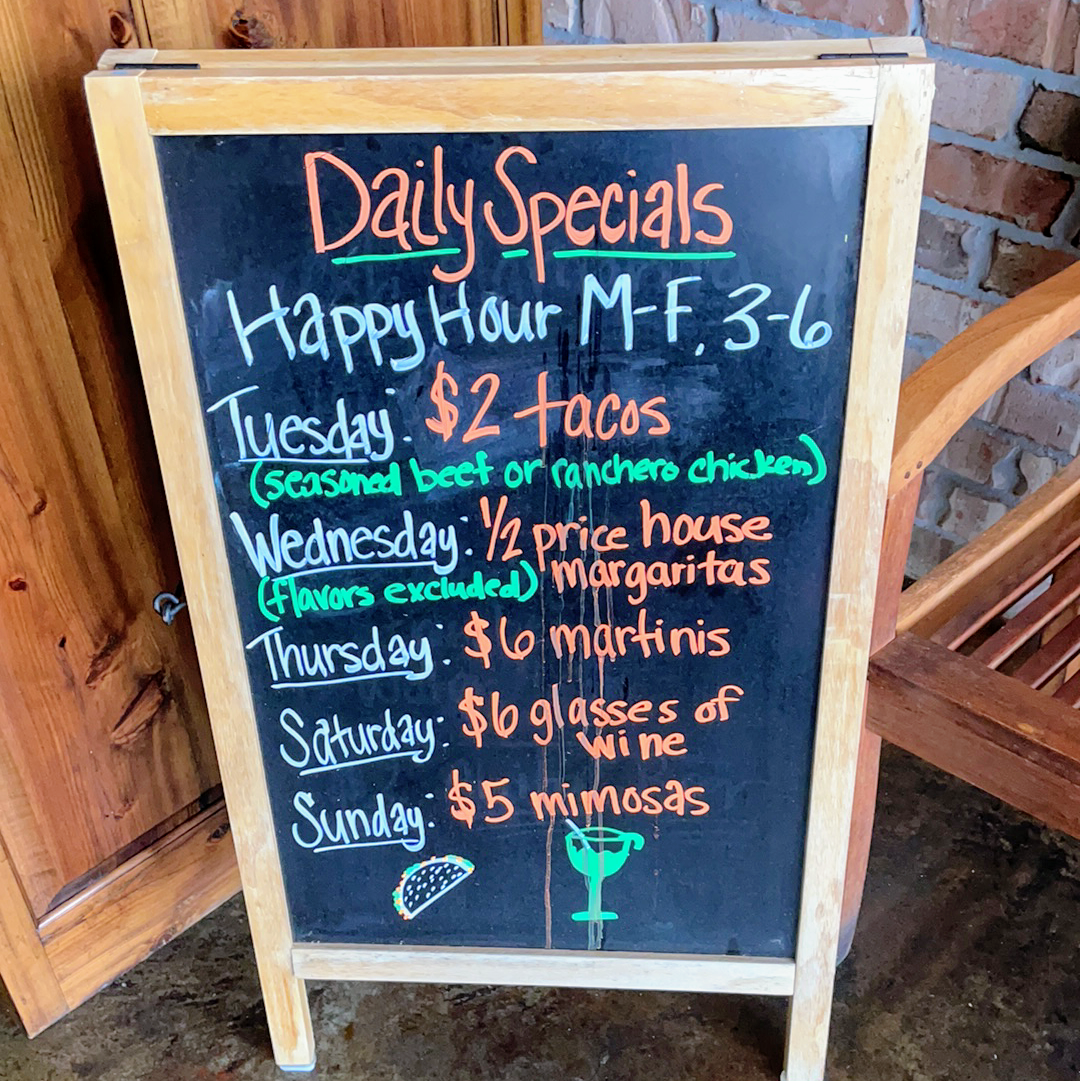 Daily Specials
Happy Hour M-F, 3-6
Tuesday: $2 tacos
(seasoned beef or ranchero chicken)
Wednesday: 1/2 price house
margaritas
(flavors excluded)
Thursday: $6 martinis
Saturday: $6 glasses of
wine
Sunday: $5 mimosas